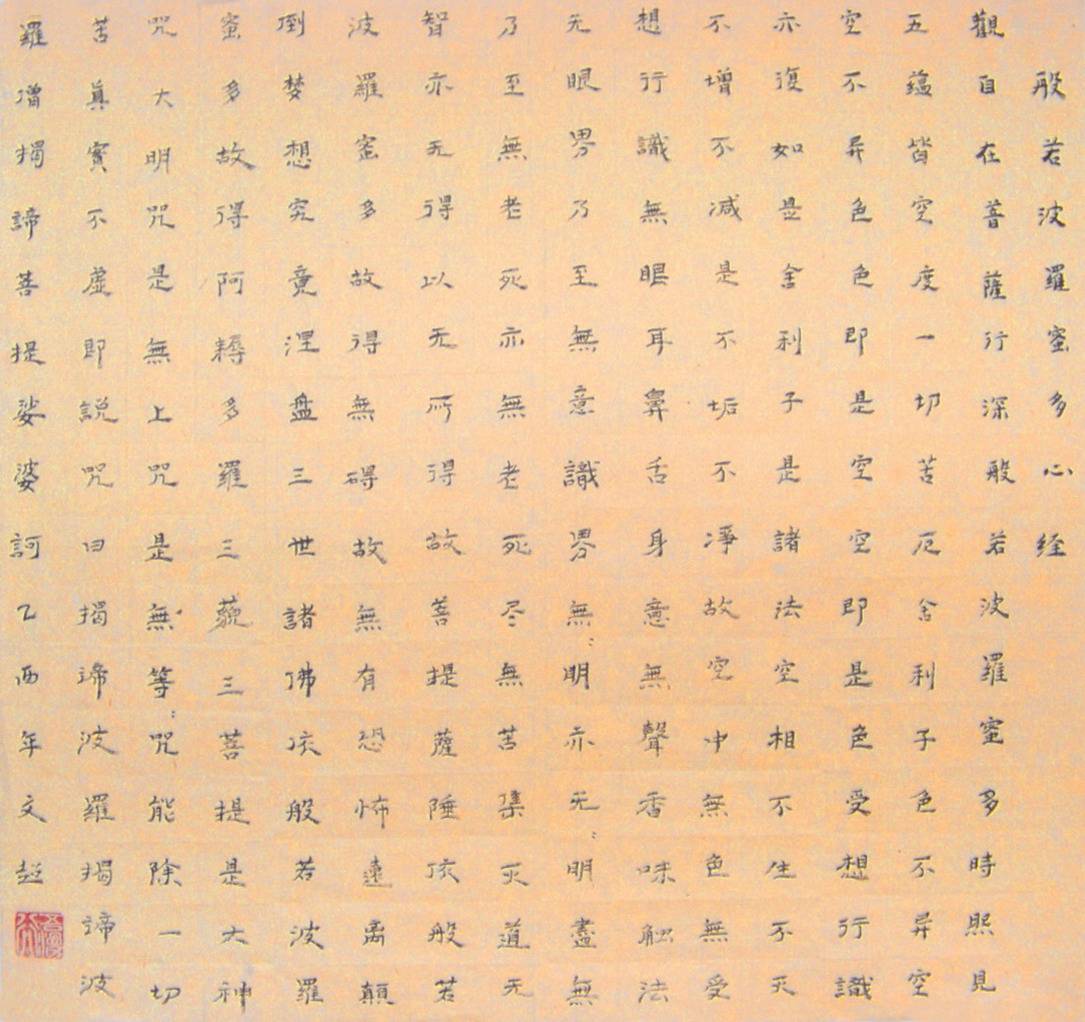 般若波羅蜜多心経
觀自在菩薩行深般若波羅蜜多時照見
五蘊皆空度一切苦厄舍利子色不异空
空不异色色即是空空即是色受想行識
亦復如是舍利子是諸法空相不生不灭
不增不减是不垢不净故空中無色無受
想行識無眼耳鼻舌身意無聲香味触法
无眼界乃至無意識界無：明亦无：明盡無
乃至無老死亦無老死尽無苦集灭道无
智亦无得以无所得故菩提薩陲依般若
波羅蜜多故得無碍故無有恐怖遠离顛
倒梦想究竟涅盘三世諸佛依般若波羅
蜜多故得阿耨多羅三藐三菩提是大神
咒大明咒是無上咒是無等：咒能除一切
苦真實不虛即説咒曰揭諦波羅揭諦波
羅增揭諦菩提娑婆訶乙酉年文超